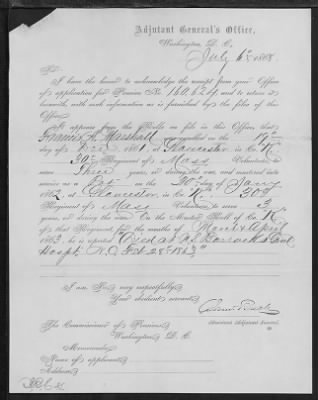 Adjutant General's Office,
Washington, D. C.,
July 6th, 1868.
Sir:
I have the honor to acknowledge the receipt from your Office
of application for Pension No. 160,624, and to return it
herewith, with such information as is furnished by the files of this
Office.
It appears from the Rolls on file in this Office, that
Francis A. Marshall was enrolled on the
day of Dec, 1861, at Gloucester in Co. K,
30th Regiment of Mass Volunteers, to
serve Three years, or during the war, and mustered into
service as a on the day of Jany,
1862, at Gloucester, in Co. K, 30th
Regiment of Mass Volunteers, to serve 3
years, or during the war. On the Muster Roll of Co. K
of that Regiment, for the months of March & April,
1863, he is reported "Died at
Hospt. Feb 28th 1863"
I am, Sir, very respectfully,
Your obedient servant,
Assistant Adjutant General.
The Commissioner of Pensions,
Washington, D. C.
Memoranda:
Name of applicant,
Address,